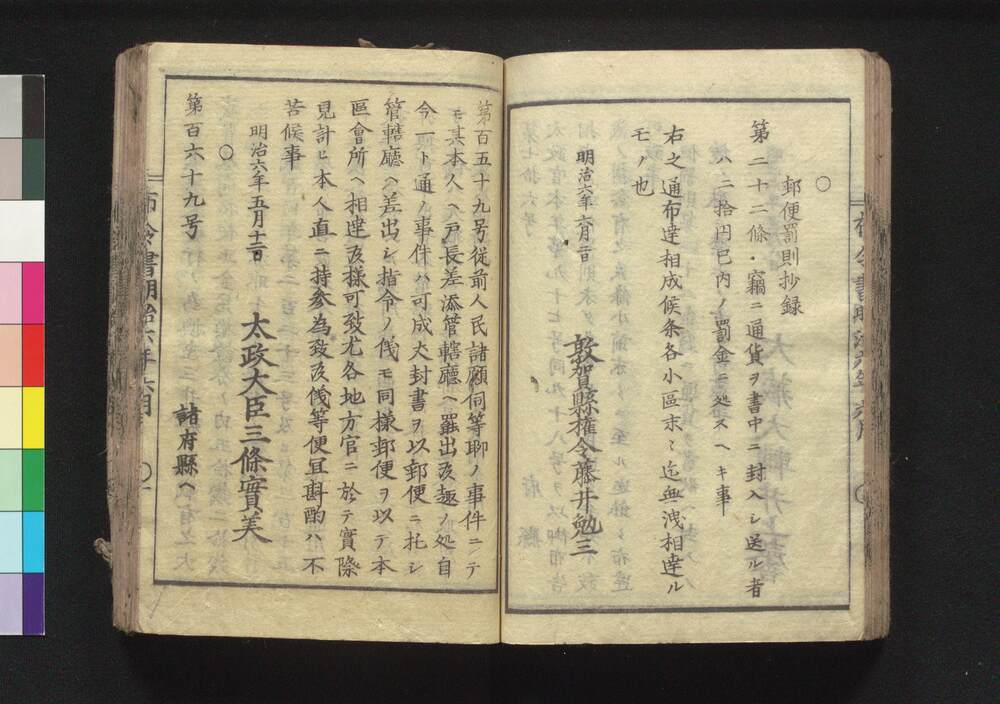 ○
郵便罰則抄録
第二十二條竊ニ通貨ヲ書中ニ封入シ送ル者
ハ二拾円已内ノ罰金ニ処スヘキ事
右之通布達相成候条各小區末々迄無洩相達ル
モノ也
明治六年六月二日
敦賀縣権令藤井勉三
第百五十九号従前人民諸願伺等聊ノ事件ニテ
モ其本人ヘ戸長差添管轄廳ヘ罷出候趣ノ処自
今一ト通ノ事件ハ可成丈封書ヲ以郵便ニ托シ
管轄廳ヘ差出シ指令ノ儀モ同様郵便ヲ以テ本
區會所ヘ相達候様可致尤各地方官ニ於テ實際
見計ヒ本人直ニ持参為致候儀等便冝斟酌ハ不
苦候事
明治六年五月十二日
太政大臣三條實美
○
諸府縣ヘ
第百六十九号
布令書明治六年六月